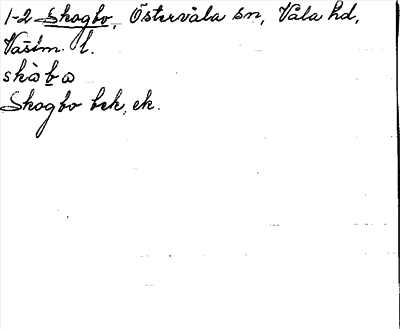 1-2 Skogbo, Östervåla sn, Våla hd,
Västm. l.
skò̀bω
Skogbo bek, ek.